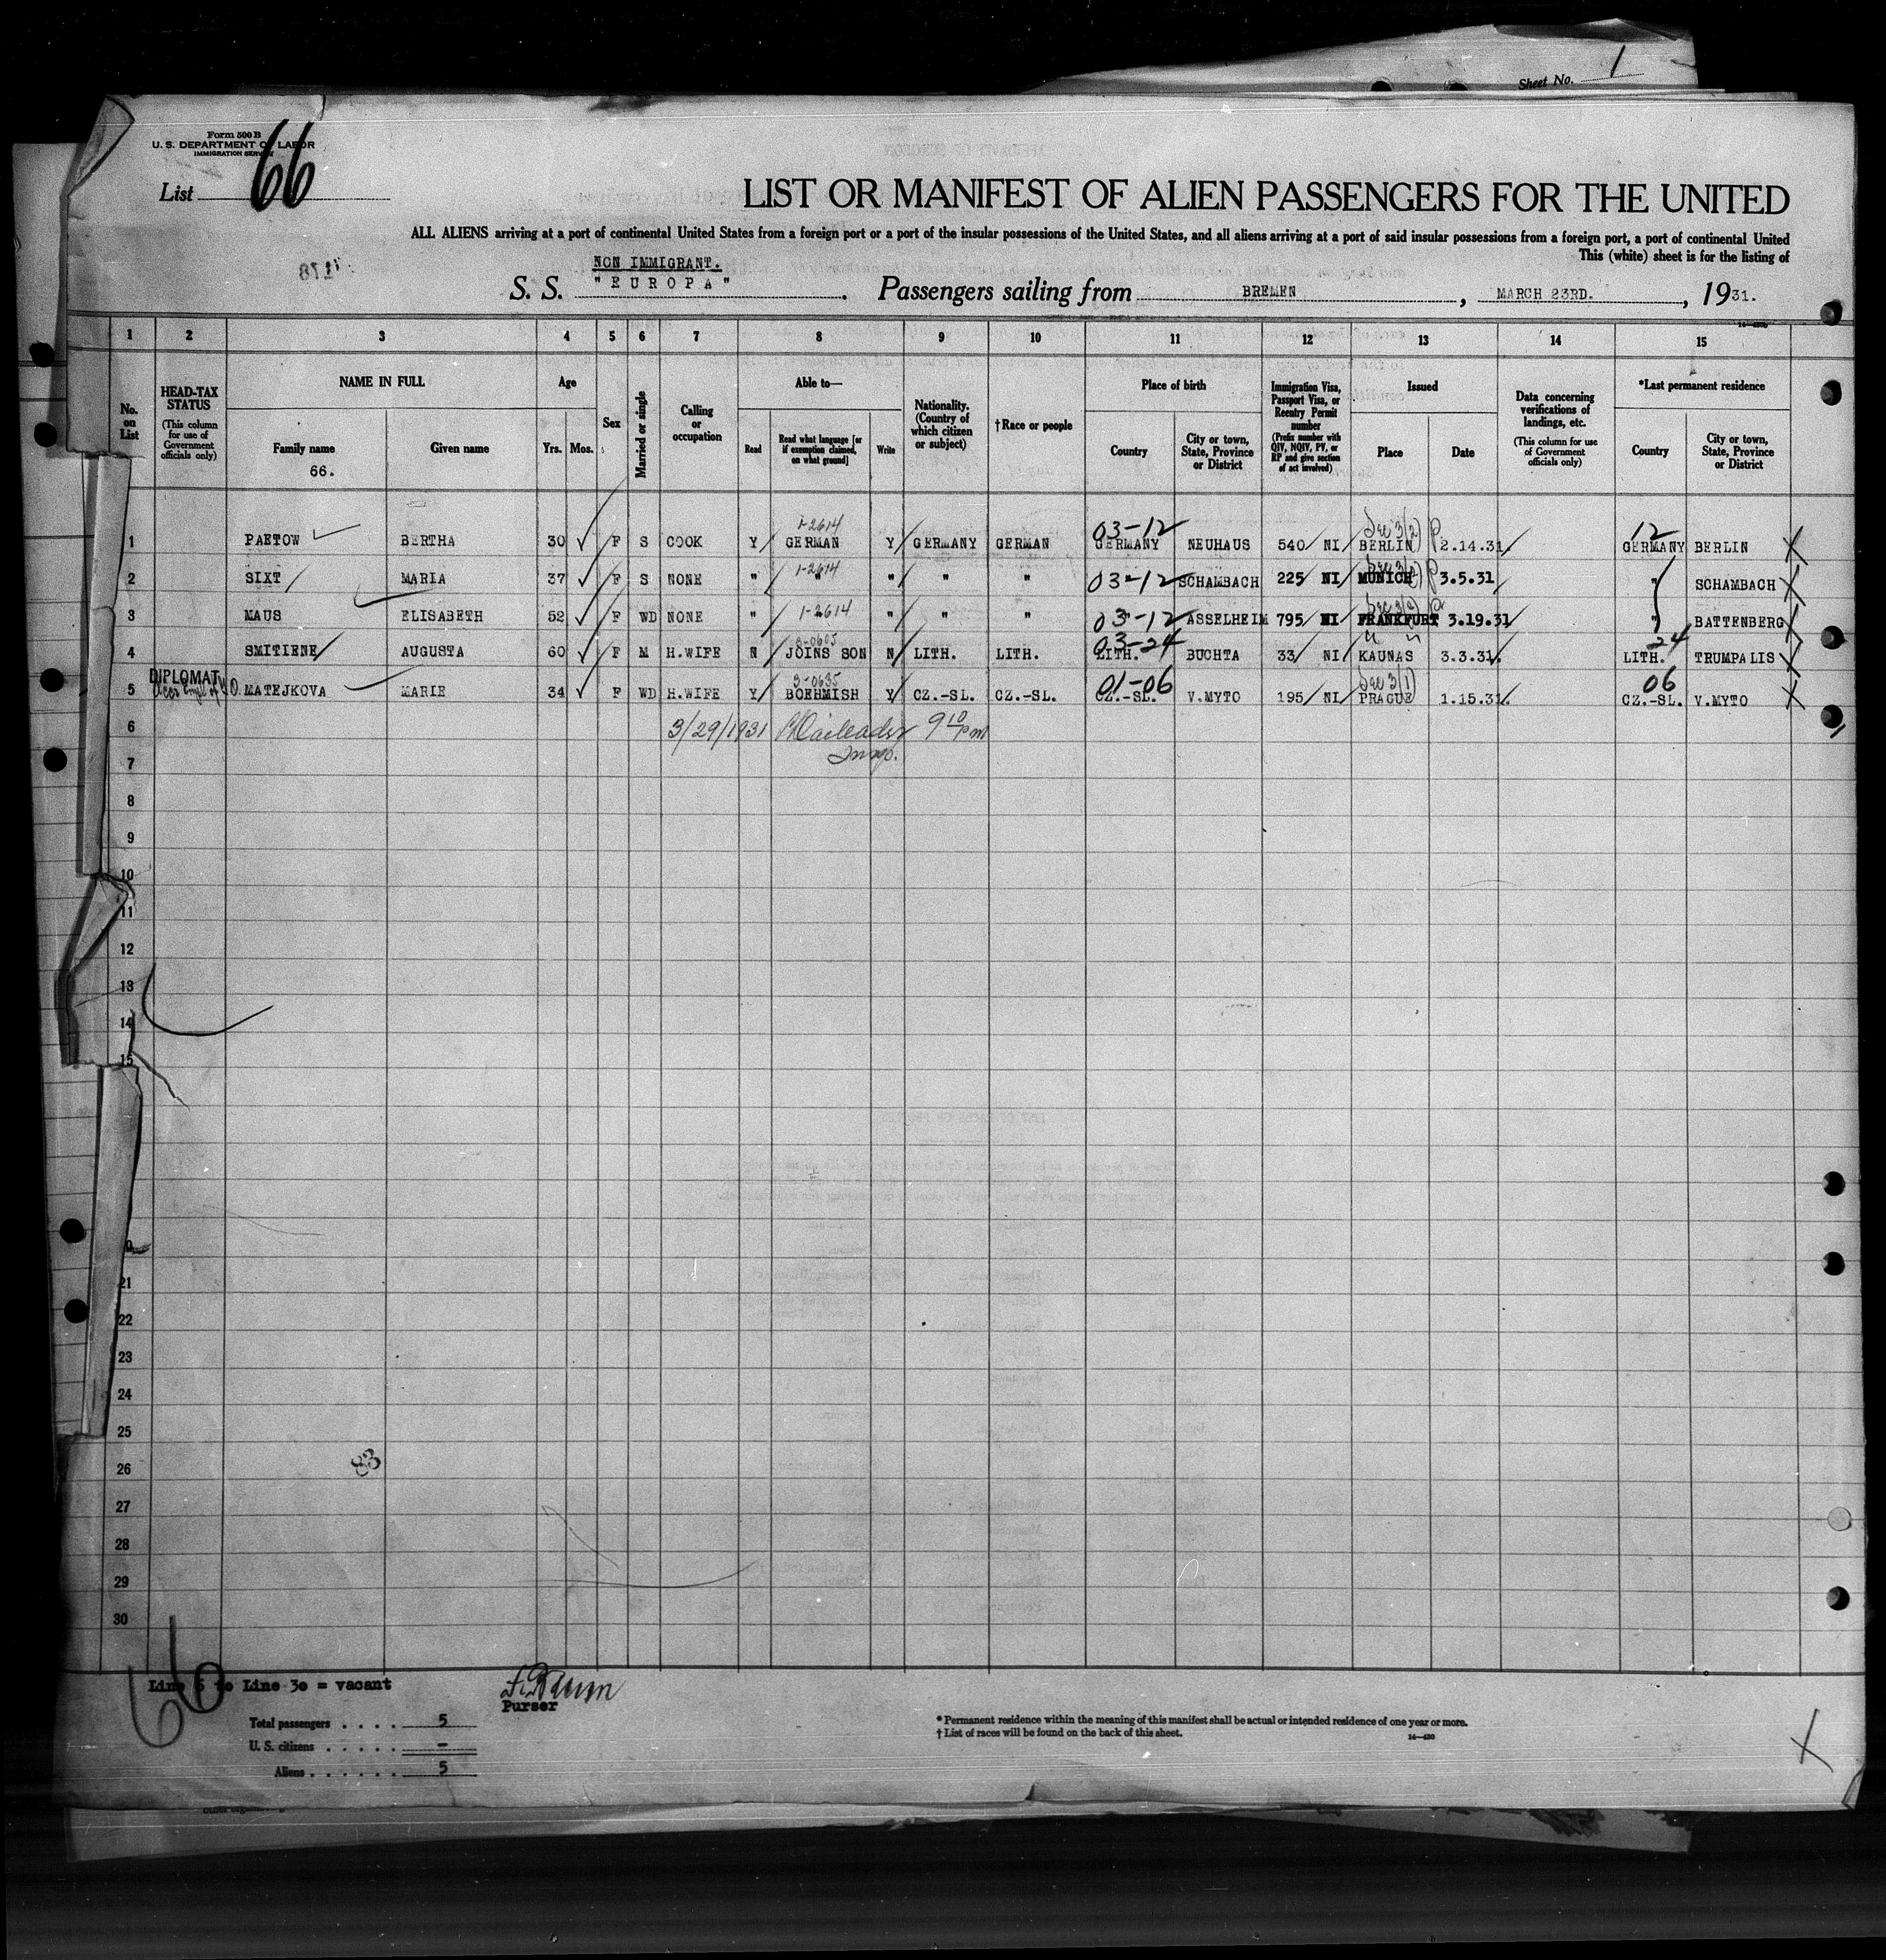 Sheet No. 1
Form 500 B
U. S. DEPARTMENT OF LABOR
IMMIGRATION SERVICE
List 66
LIST OR MANIFEST OF ALIEN PASSENGERS FOR THE UNITED
ALL ALIENS arriving at a port of continental United States from a foreign port or a port of the insular possessions of the United States, and all aliens arriving at a port of said insular possessions from a foreign port, a port of continental United
This (white) sheet is for the listing of
NON IMMIGRANT.
S. S. "EUROPA". Passengers sailing from BREMEN, MARCH 23RD., 1931.
1 2 3 4 5 6 7 8 9 10 11 12 13 14 15
No. on List
HEAD-TAX STATUS (This column for use of Government officials only)
NAME IN FULL
Family name
66.
Given name
Age
Yrs. Mos.
Sex
Married or single
Calling or occupation
Able to—
Read
Read what language [or if exemption claimed, on what ground]
Write
Nationality. (Country of which citizen or subject)
†Race or people
Place of birth
Country
City or town, State, Province or District
Immigration Visa, Passport Visa, or Reentry Permit number (Prefix number with QIV, NQIV, PV, or RP and give section of act involved)
Issued
Place
Date
Data concerning verifications of landings, etc. (This column for use of Government officials only)
*Last permanent residence
Country
City or town, State, Province or District
1-2614 03-12 Sec 3(2) 12
1 PAETOW BERTHA 30 F S COOK Y GERMAN Y GERMANY GERMAN GERMANY NEUHAUS 540 NI BERLIN 2.14.31. GERMANY BERLIN
1-2614
2 SIXT MARIA 37 F S NONE " " " " " 03-12 SCHAMBACH 225 NI MUNICH 3.5.31 " SCHAMBACH
3 MAUS ELISABETH 52 F WD NONE " 1-2614 " " " 03-12 ASSELHEIM 795 NI FRANKFURT 3.19.31 " BATTENBERG
03-24 " " 24
4 SMITIENE AUGUSTA 60 F M H.WIFE N JOINS SON N LITH. LITH. LITH. BUCHTA 33 NI KAUNAS 3.3.31. LITH. TRUMPALIS
DIPLOMAT 3-0635 01-06 Sec 3(1) 06
5 MATEJKOVA MARIE 34 F WD H.WIFE Y BOEHMISH Y CZ.-SL. CZ.-SL. CZ.-SL. V.MYTO 195 NI PRAGUE 1.15.31. CZ.-SL. V.MYTO
6 3/29/1931 9 10 pm
Insp.
7
8
9
10
11
12
13
14
15
21
22
23
24
25
26
83
27
28
29
30
66
Line 6 to Line 30 = vacant
Purser
Total passengers . . . . 5
U. S. citizens . . . . . -
Aliens . . . . . . 5
* Permanent residence within the meaning of this manifest shall be actual or intended residence of one year or more.
† List of races will be found on the back of this sheet.